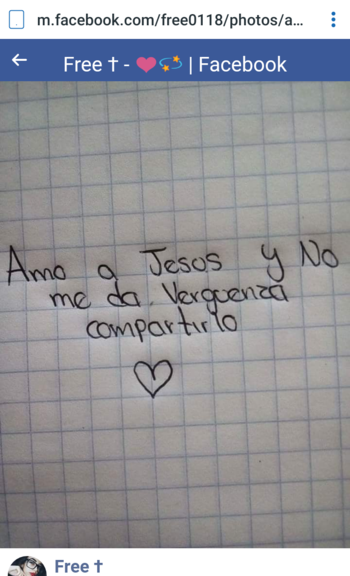 m.facebook.com/free0118/photos/a...
Free † - ❤💫 | Facebook
Amo a Jesos y No
me da Verguenza
compartirlo
♡
Free †